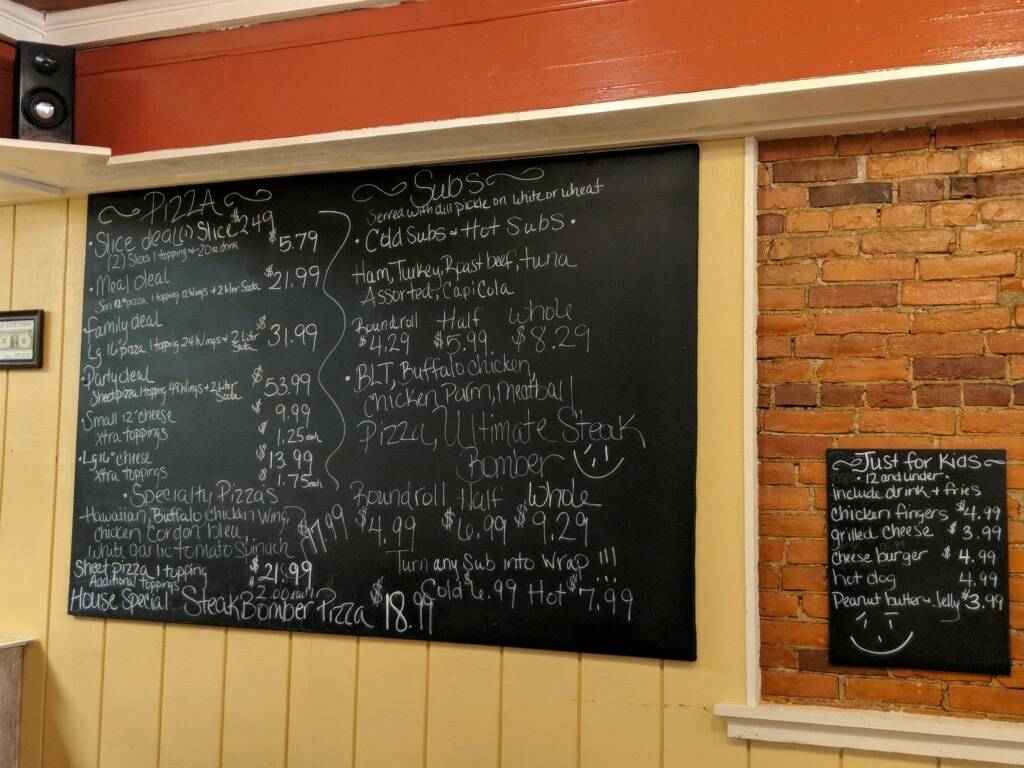 PIZZA
• Slice deal (1) Slice $2.49
(2) Slices 1 topping + 20 oz drink $5.79
• Meal deal $21.99
Sm 12" pizza 1 topping 12 wings + 2 liter Soda
• family deal $31.99
Lg 16" pizza 1 topping 24 wings + 2 Liter Soda
• Party deal $53.99
Sheet pizza 1 topping 48 wings + 2 Liter Soda
• Small 12" cheese $9.99
xtra toppings $1.25 each
• Lg 16" cheese $13.99
xtra toppings $1.75 each
• Specialty Pizzas
Hawaiian, Buffalo chicken wing,
chicken Cordon bleu, $17.99
white garlic tomato spinach
Sheet pizza 1 topping $21.99
Additional toppings 2.00 each
House Special Steak Bomber Pizza $18.99
Subs
Served with dill pickle on white or wheat
• Cold Subs + Hot Subs •
Ham, Turkey, Roast beef, tuna
Assorted, CapiCola
Round roll Half whole
$4.29 $5.99 $8.29
• BLT, Buffalo chicken,
chicken Parm, meatball
Pizza, Ultimate Steak
Bomber
Round roll Half whole
$4.99 $6.99 $9.29
Turn any Sub into Wrap !!!
Cold $6.99 Hot $7.99
Just for Kids
• 12 and under •
include drink + fries
chicken fingers $4.99
grilled cheese $3.99
cheese burger $4.99
hot dog 4.99
Peanut butter + Jelly $3.99